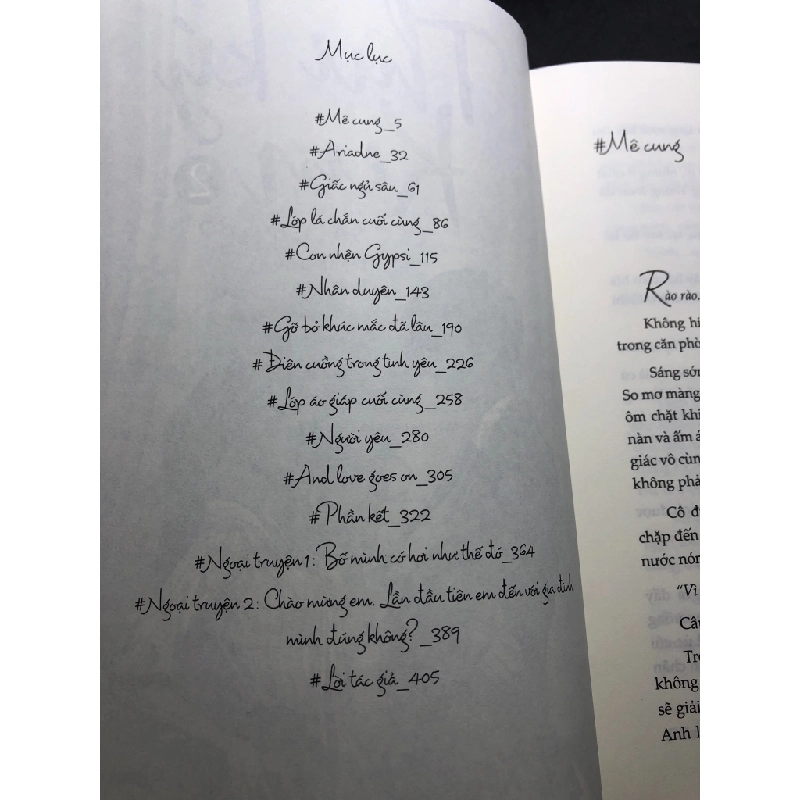 Mục lục
#Mê cung_5
#Ariadne_32
#Giấc ngủ sâu_61
#Lớp lá chắn cuối cùng_86
#Con nhện Gypsi_115
#Nhân duyên_143
#Gỡ bỏ khúc mắc đã lâu_190
#Điên cuồng trong tình yêu_226
#Lớp áo giáp cuối cùng_258
#Người yêu_280
#And love goes on_305
#Phần kết_322
#Ngoại truyện 1: Bố mình có hơi như thế đó_364
#Ngoại truyện 2: Chào mừng em. Lần đầu tiên em đến với gia đình
mình đúng không?_389
#Lời tác giả_405
#Mê cung
Rào rào.
Không hi
trong căn phò
Sáng sớn
So mơ màng
ôm chặt khi
nàn và ấm á
giác vô cùn
không phả
Cô đ
chặp đến
nước nón
"Vì
Câu
Tro
không
sẽ giải
Anh l